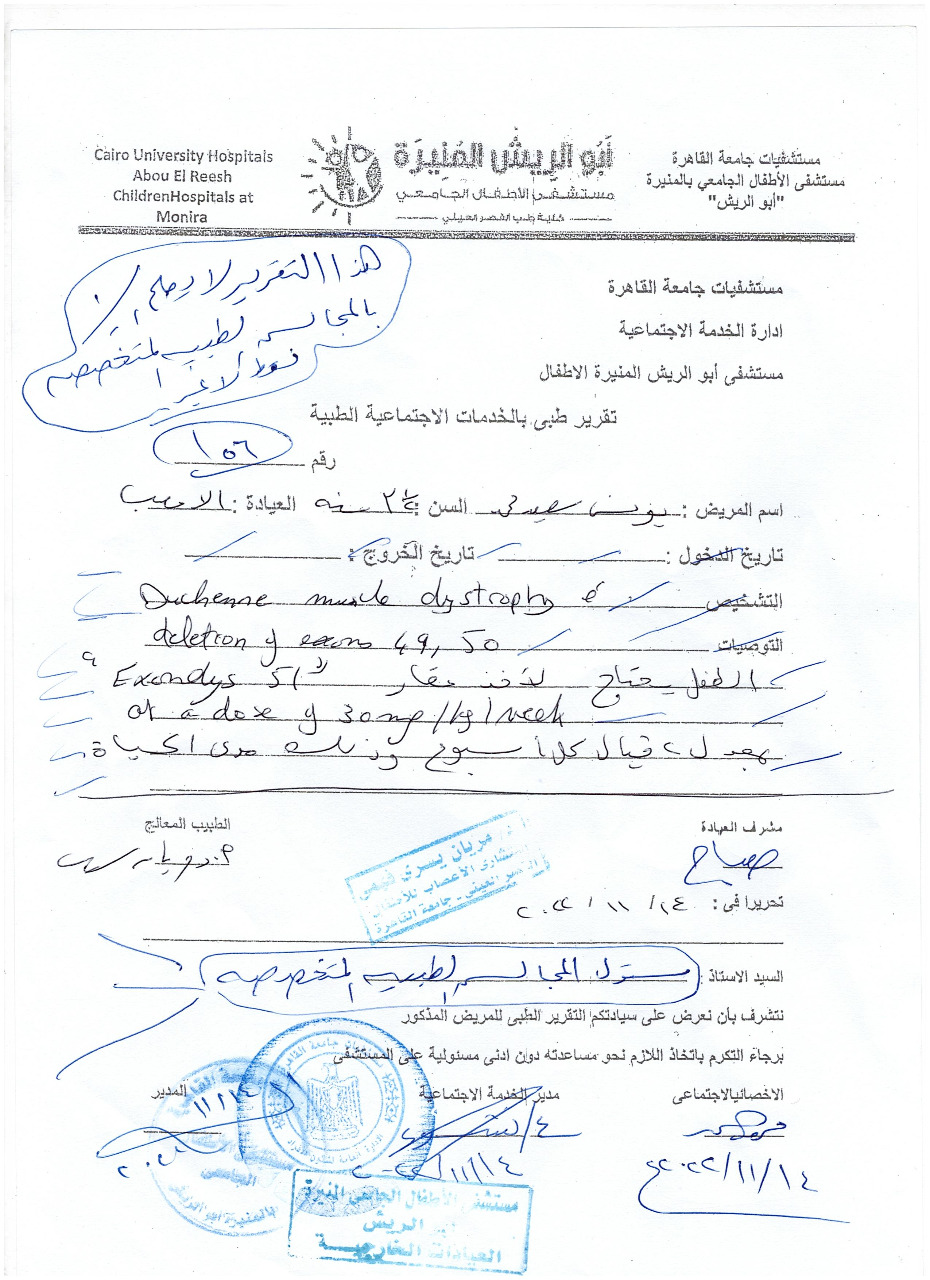 Cairo University Hospitals
Abou El Reesh
ChildrenHospitals at
Monira
أبو الريش المنيرة
مستشفى الأطفال الجامعي
كلية طب القصر العيني
مستشفيات جامعة القاهرة
مستشفى الأطفال الجامعي بالمنيرة
"أبو الريش"
هذا التقرير لا يصلح إلا
بالمجالس الطبيه المتخصصه
فقط لا غير
مستشفيات جامعة القاهرة
ادارة الخدمة الاجتماعية
مستشفى أبو الريش المنيرة الاطفال
تقرير طبى بالخدمات الاجتماعية الطبية
رقم ١٥٦
اسم المريض : يونس السن : ٢½ سنه العيادة :
تاريخ الدخول : تاريخ الخروج :
التشخيص : Duchenne muscle dystrophy c̄
التوصيات deletion of exons 49, 50
الطفل يحتاج لأخذ عقار Exondys 51
at a dose of 30mg/kg/week
بمعدل ٢ فيال كل أسبوع وذلك مدى الحياة
مشرف العيادة
الطبيب المعالج
صباح
مريان يسرى فهمى
استشارى الأعصاب للأطفال
القصر العينى - جامعة القاهرة
تحريرا فى : ١٤ / ١١ / ٢٠٢٢
السيد الاستاذ : مسئول المجالس الطبيه المتخصصه
نتشرف بأن نعرض على سيادتكم التقرير الطبى للمريض المذكور
برجاء التكرم باتخاذ اللازم نحو مساعدته دون ادنى مسئولية على المستشفى
الاخصائيالاجتماعى
مدير الخدمة الاجتماعية
المدير
٢٠٢٢/١١/١٤
٢٠٢٢/١١/١٤
١١/١٤
٢٠٢٢
مستشفى الأطفال الجامعى المنيرة
أبو الريش
العيادات الخارجية